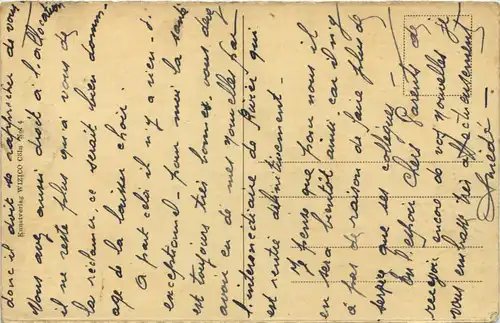 donc il doit se rapprocher de vous
Vous avez aussi droit à l'allocation
il ne reste plus qu'à vous de
la réclamer, ce serait bien domm-
age de la laisser choir.
A part cela il n'y a rien d'
exceptionnel - pour moi la santé
est toujours très bonnes, vous devez
avoir eu de mes nouvelles par
l'intermédiaire de Rivier qui
est rentré définitivement -
Je pense que pour nous il
en sera bientôt ainsi car il n'y
a pas de raison de faire plus de
temps que ses collègues -
En l'espoir Chers Parents de
recevoir encore de vos nouvelles je
vous embrasse très affectueusement
Amédé -
Kunstverlag WIZICO Cöln